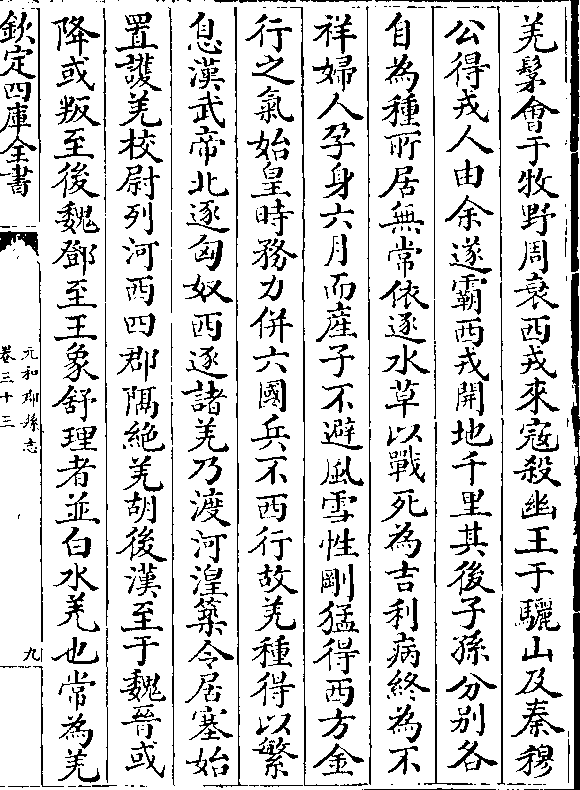 羌髳會于牧野周衰西戎來宼殺幽王于驪山及秦穆
公得戎人由余遂霸西戎開地千里其後子孫分别各
自為種所居無常依逐水草以戰死為吉利病終為不
祥婦人孕身六月而産子不避風雪性剛猛得西方金
行之氣始皇時務力併六國兵不西行故羌種得以繁
息漢武帝北逐匈奴西逐諸羌乃渡河湟築令居塞始
置䕶羌校尉列河西四郡隔絶羌胡後漢至于魏晉或
降或叛至後魏鄧至王象舒理者並白水羌也常為羌
欽定四庫全書
元和郡縣志
卷三十三
九